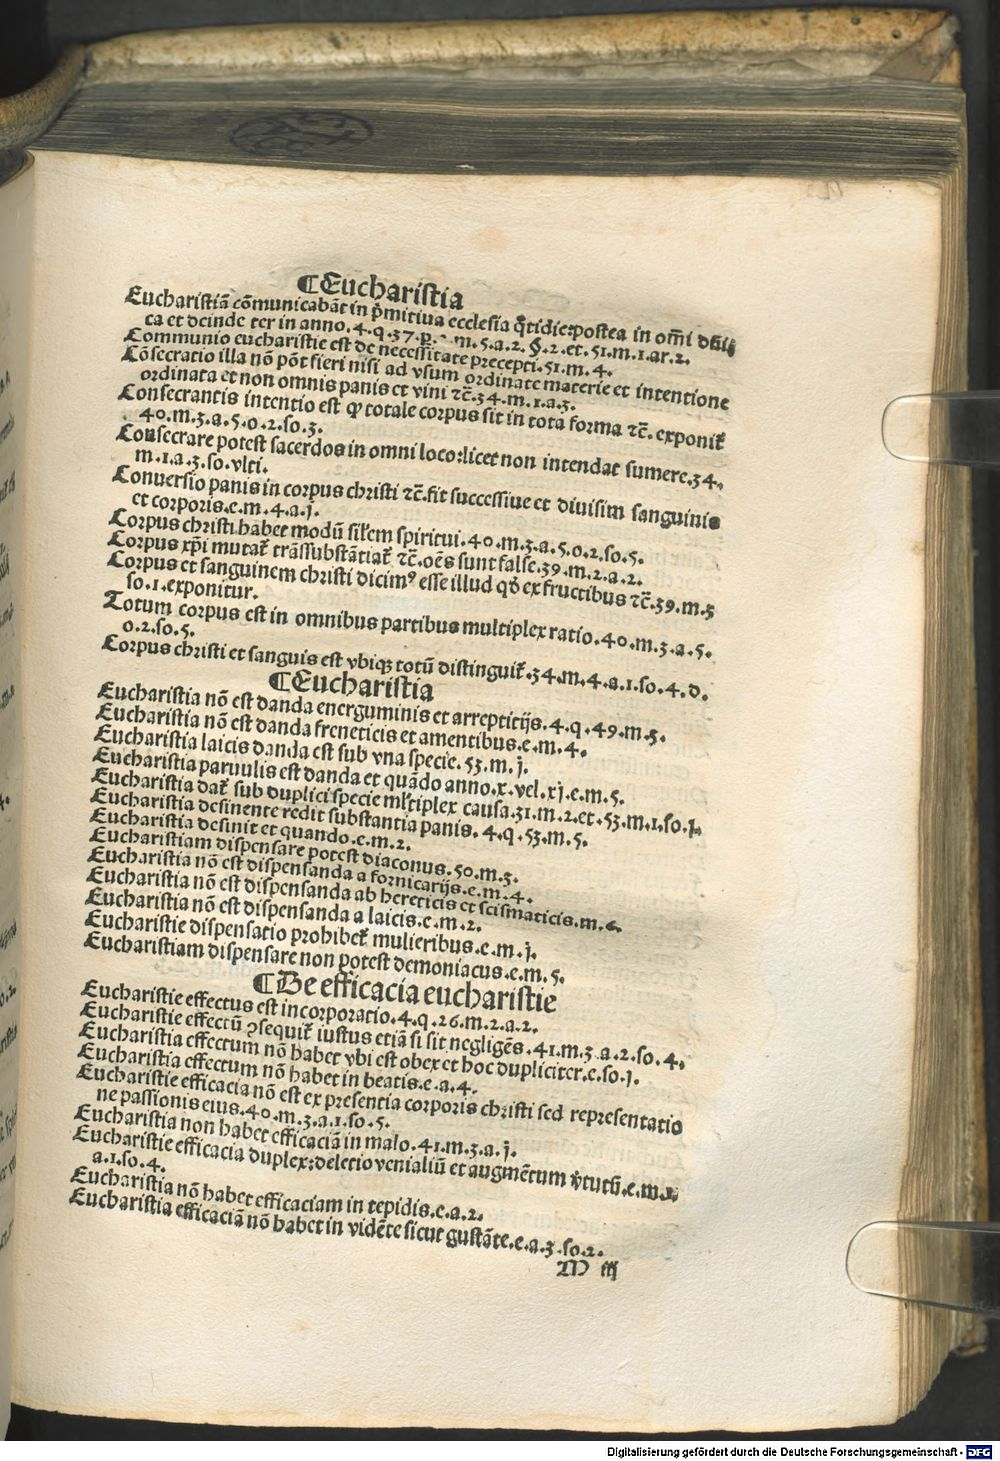 ¶Eucharistia
Eucharistiā cōmunicabāt in p̄mitiua ecclesia q̄tidie:postea in om̄i
ca et deinde ter in anno.4.q.37.p. m.5.a.2.§.2.et.51.m.1.ar.2.
Communio eucharistie est de necessitate precepti.51.m.4.
Cōsecratio illa nō pōt fieri nisi ad vsum ordinate materie et intentione
ordinata et non omnis panis et vini ⁊c̄.34.m.1.a.3.
Consecrantis intentio est ꝙ totale corpus sit in tota forma ⁊c̄.exponit᷑
40.m.3.a.5.o.2.so.3.
Consecrare potest sacerdos in omni loco:licet non intendat sumere.34.
m.1.a.3.so.vlti.
Conuersio panis in corpus christi ⁊c̄.fit successiue et diuisim sanguinis
et corporis.e.m.4.a.j.
Corpus christi habet modū sil'em spiritui.40.m.3.a.5.o.2.so.5.
Corpus xp̄i mutat᷑ trāssubstātiat᷑ ⁊c̄.oēs sunt false.39.m.2.a.2.
Corpus et sanguinem christi dicimꝰ esse illud qd̄ ex fructibus ⁊c̄.39.m.3
so.1.exponitur.
Totum corpus est in omnibus partibus multiplex ratio.40.m.3.a.5.
o.2.so.5.
Corpus christi et sanguis est vbiqꝫ totū distinguit᷑.34.m.4.a.1.so.4.d.
¶Eucharistia
Eucharistia nō est danda energuminis et arreptitijs.4.q.49.m.3.
Eucharistia nō est danda freneticis et amentibus.e.m.4.
Eucharistia laicis danda est sub vna specie.53.m.j.
Eucharistia paruulis est danda et quādo anno.x.vel.xj.e.m.5.
Eucharistia dat᷑ sub duplici specie ml'tiplex causa.31.m.2.et.53.m.1.so.j.
Eucharistia desinente redit substantia panis.4.q.53.m.5.
Eucharistia desinit et quando.e.m.2.
Eucharistiam dispensare potest diaconus.50.m.3.
Eucharistia nō est dispensanda a fornicarijs.e.m.4.
Eucharistia nō est dispensanda ab hereticis et scismaticis.m.6.
Eucharistia nō est dispensanda a laicis.e.m.2.
Eucharistie dispensatio prohibet᷑ mulieribus.e.m.j.
Eucharistiam dispensare non potest demoniacus.e.m.5.
¶De efficacia eucharistie
Eucharistie effectus est incorporatio.4.q.26.m.2.a.2.
Eucharistie effectū ꝯsequit᷑ iustus etiā si sit negligēs.41.m.3.a.2.so.4.
Eucharistia effectum nō habet vbi est obex et hoc dupliciter.e.so.j.
Eucharistia effectum nō habet in beatis.e.a.4.
Eucharistie efficacia nō est ex presentia corporis christi sed representatio
ne passionis eius.40.m.3.a.1.so.5.
Eucharistia non habet efficaciā in malo.41.m.3.a.j.
Eucharistie efficacia duplex:deletio venialiū et augmētum v̓tutū.e.m.1.
a.1.so.4.
Eucharistia nō habet efficaciam in tepidis.e.a.2.
Eucharistia efficaciā nō habet in vidēte sicut gustāte.e.a.3.so.2.
M iij
Digitalisierung gefördert durch die Deutsche Forschungsgemeinschaft - DFG